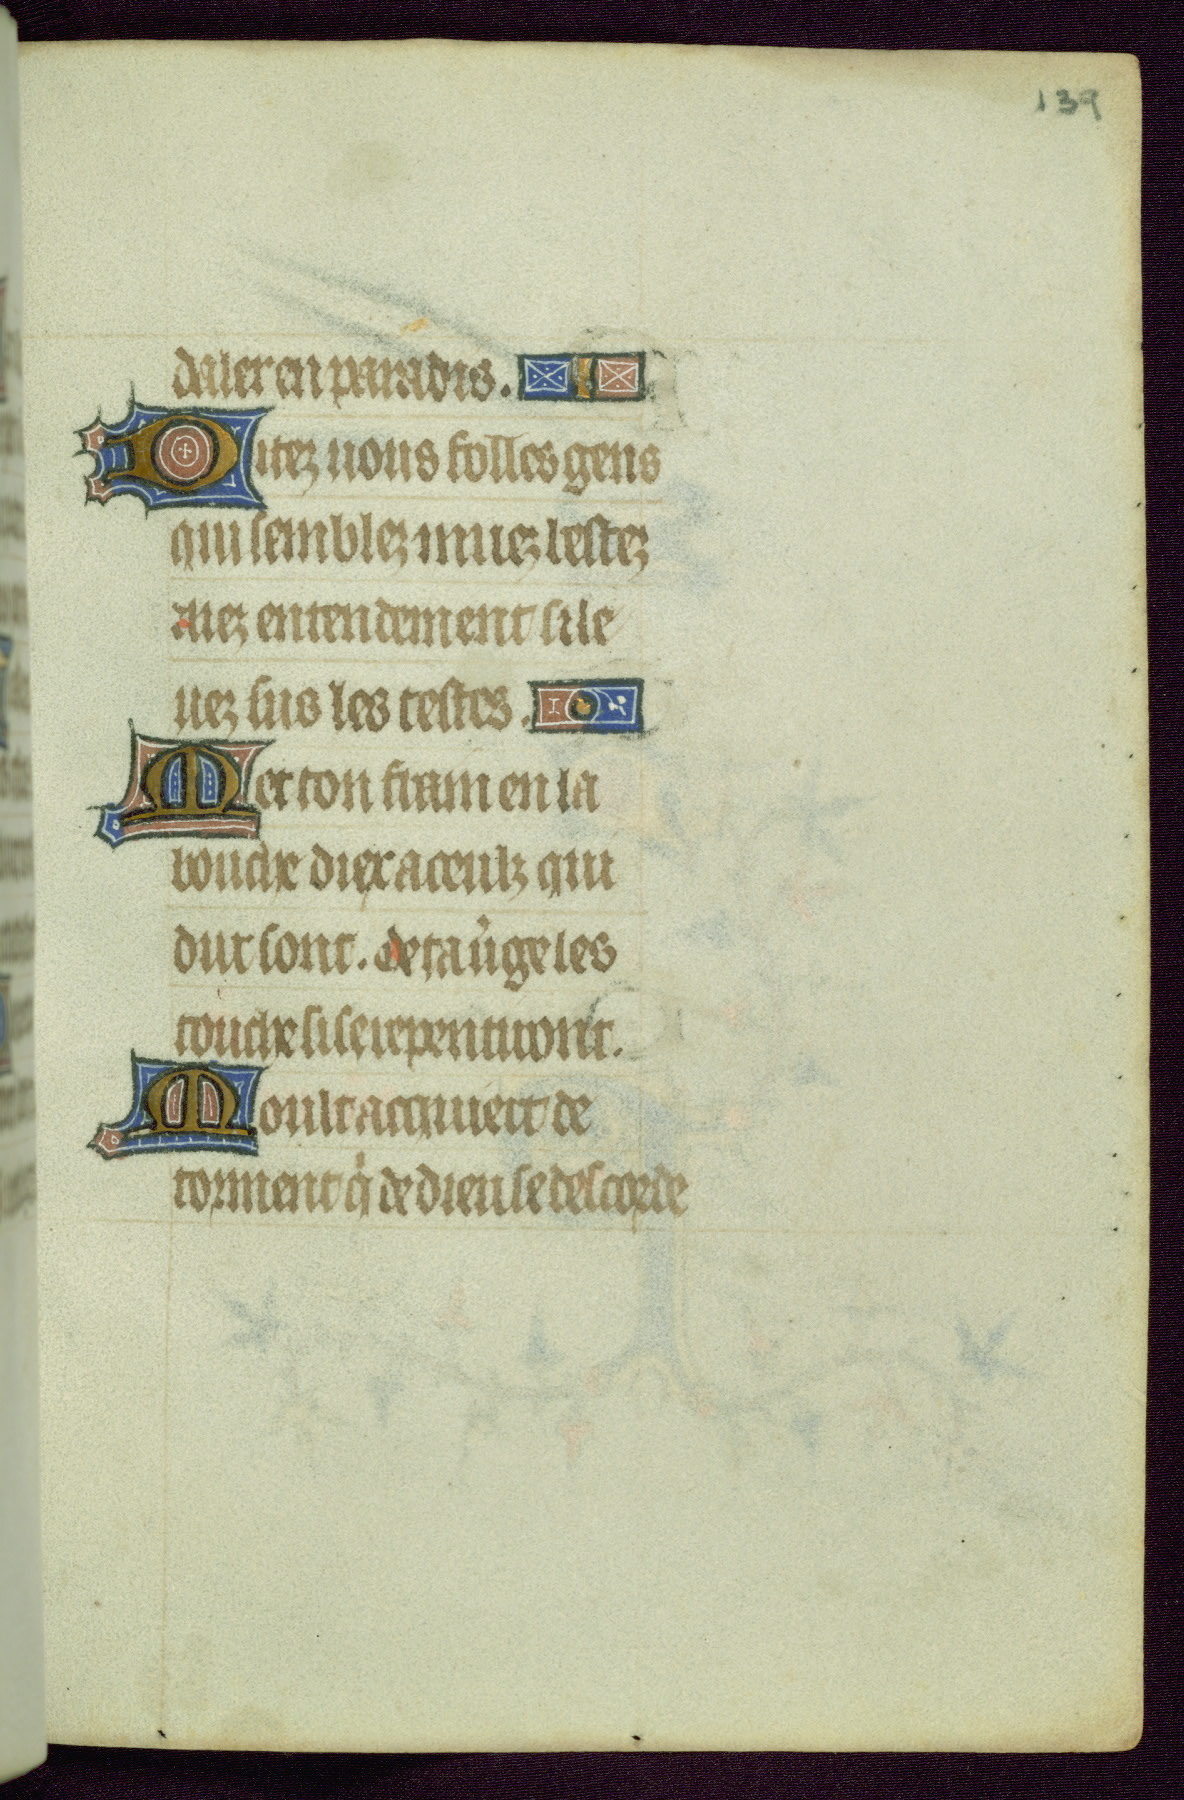 139
daler en paradis.
Ditez uous folles gens
qui semblez muez bestez
Aiez entendement si le
uez sus les testes.
Met ton frain en la
bouche diex a ceulz qui
dur sont. De ta v̉ge les
touche si se repentiront.
Moult acquiert de
torment q̇ de dieu se descorde